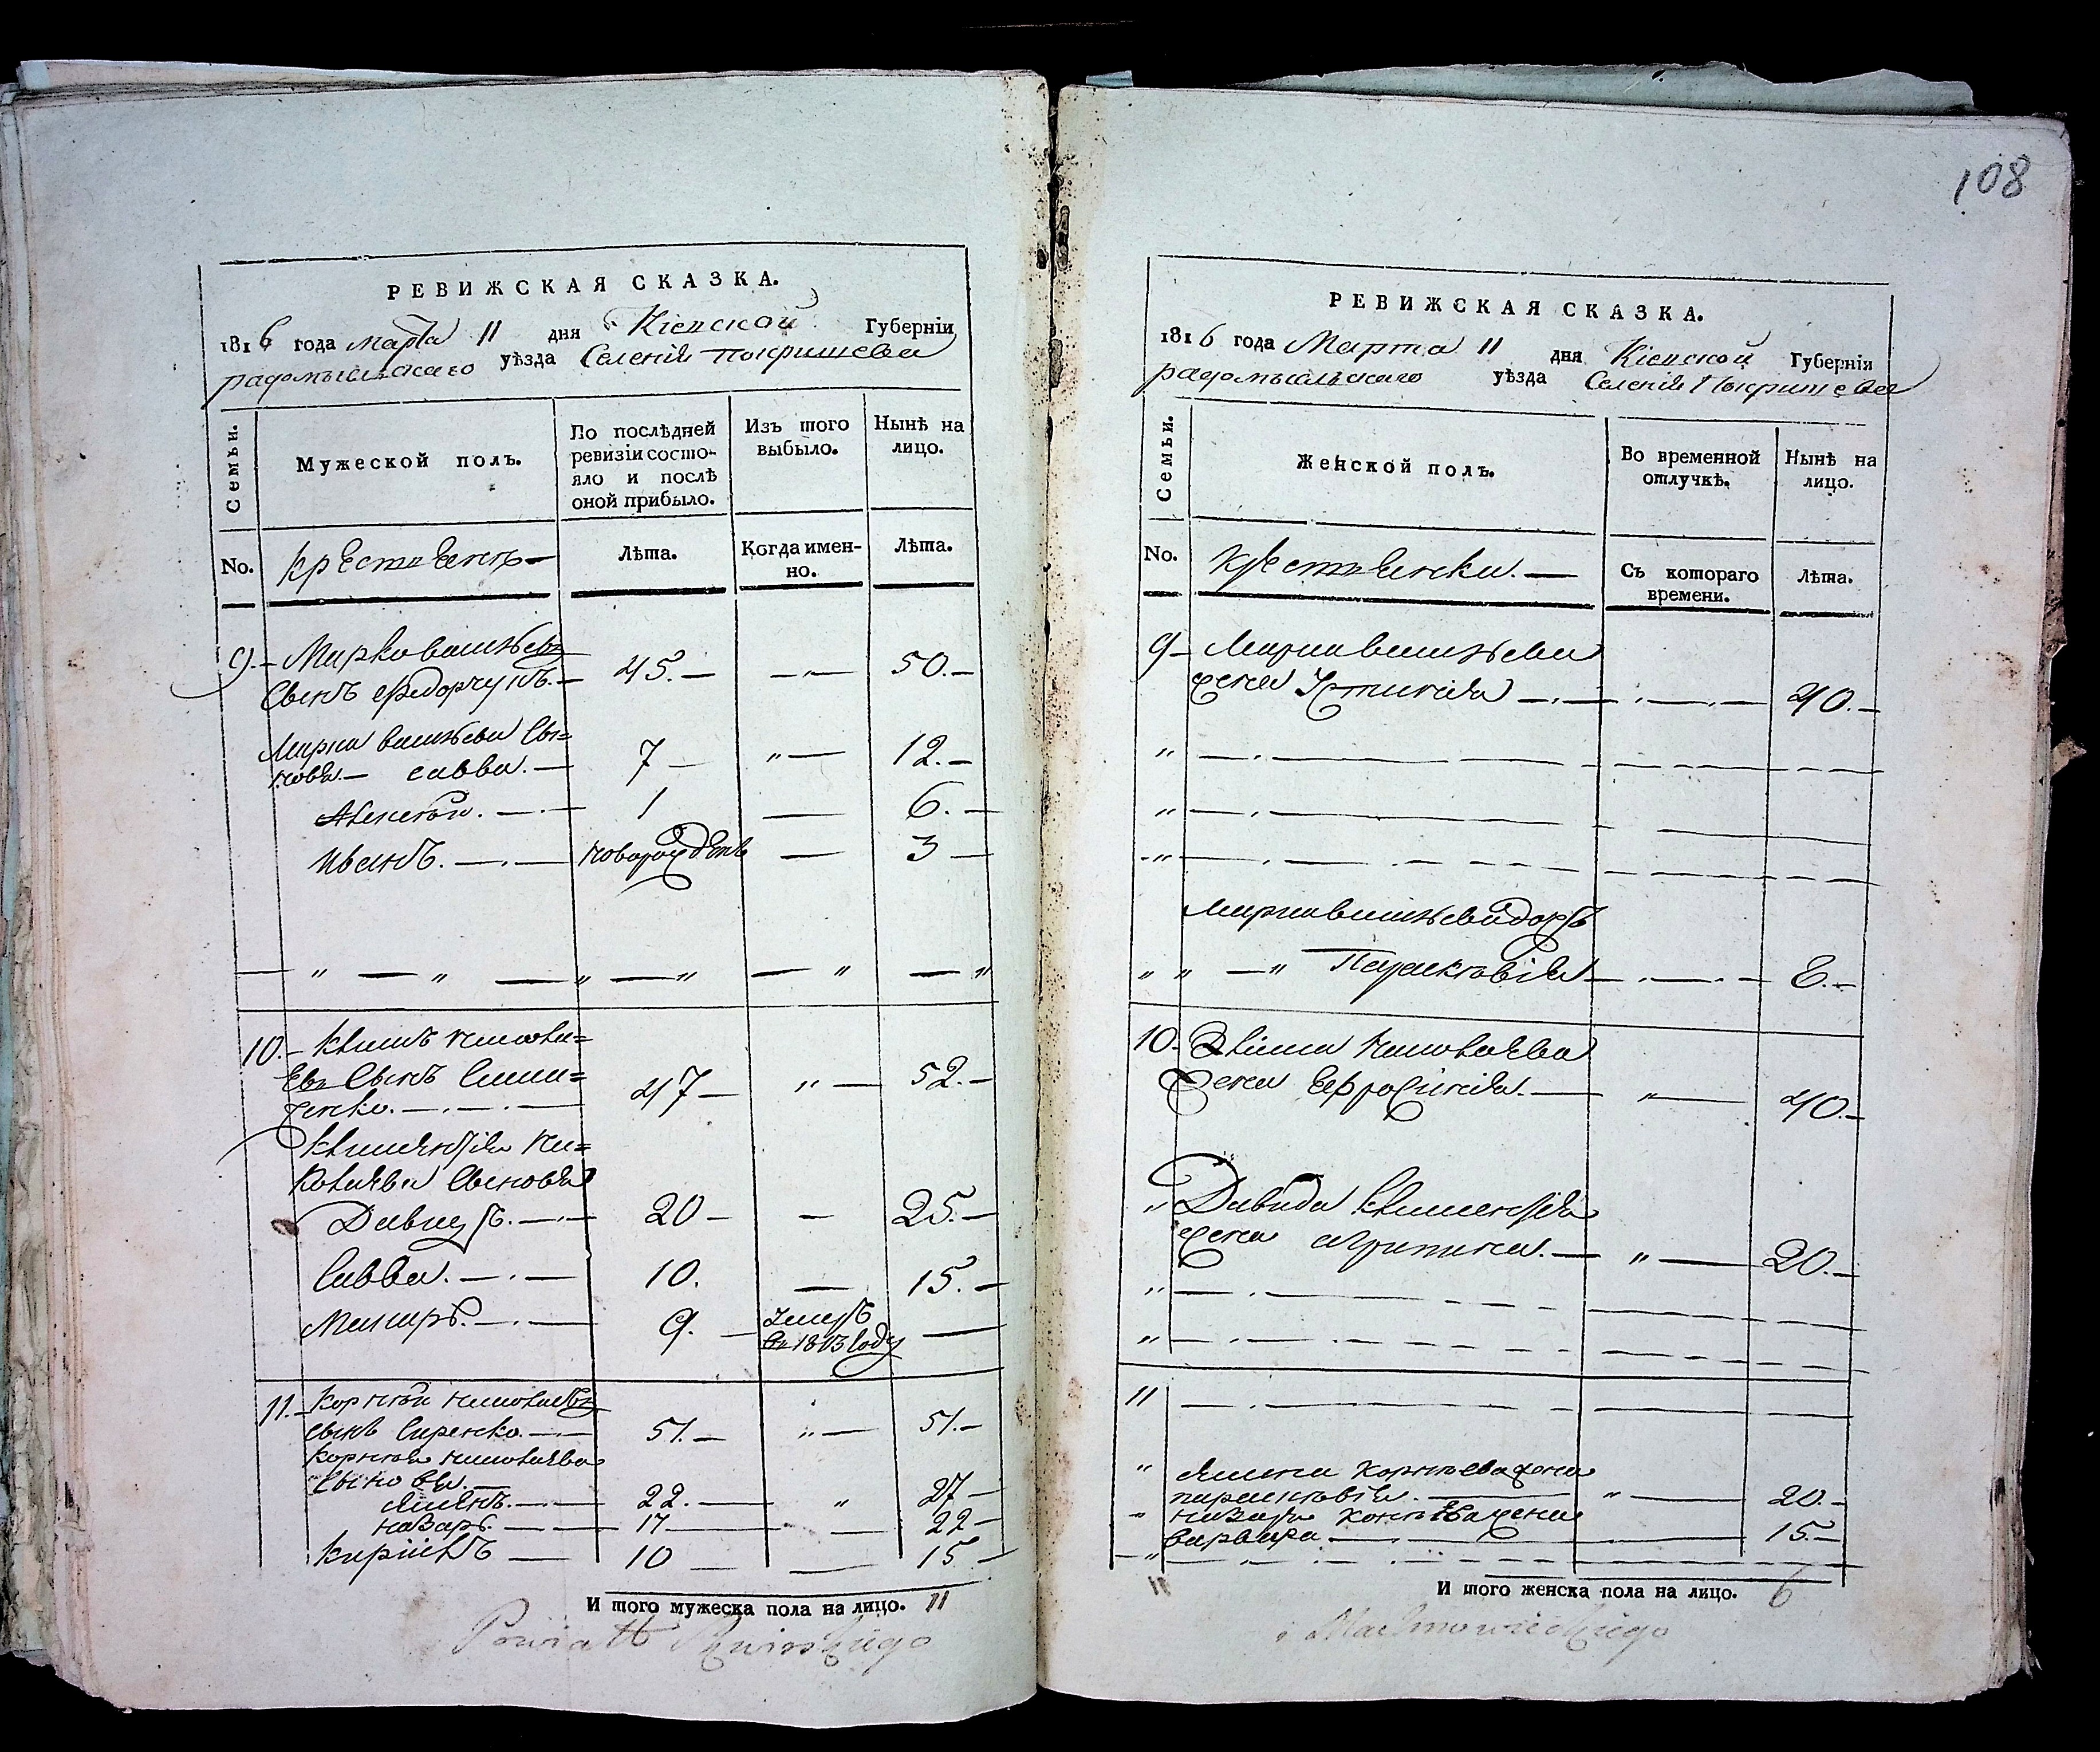 108
РЕВИЖСКАЯ СКАЗКА.
1816 года Марта 11 дня Кіевской Губерніи
радомысльскаго уѣзда Селенія Покришева
Семьи.
Мужеской полъ.
По послѣдней
ревизіи состо-
яло и послѣ
оной прибыло.
Изъ того
выбыло.
Нынѣ на
лицо.
No.
Крестьянъ
Лѣта.
Когда имен-
но.
Лѣта.
9. Марко
Сынъ Федорчукъ. 45. 50.
Марка Сы=
новья. савва. 7 12.
Алексѣй. 1 6.
Иванъ. новорожденъ 3
10. Климъ
Сынъ 47 52.
Климентія Ни=
колаева Сыновья
Давидъ. 20 25.
Савва. 10. 15.
Макаръ. 9. умеръ
въ 1813 году
11. Корней
сынъ Сиренко. 51. 51.
Корнея
Сыновья
22. 27
назаръ. 17 22
Кирилъ 10 15
И того мужеска пола на лицо. 11
Powiatu
РЕВИЖСКАЯ СКАЗКА.
1816 года Марта 11 дня Кіевской Губернія
радомысльскаго уѣзда Селенія Покришева
Семьи.
Женской полъ.
Во временной
отлучкѣ.
Нынѣ на
лицо.
No.
Крестьянки.
Съ котораго
времени.
Лѣта.
9 Марка
жена Устинія 40.
Марка дочь
Парасковія 8.
10. Клима
жена Ефросинія. 40.
Давида Климентія
жена агрипина. 20.
11
Корнѣева жена
парасковія. 20.
назара жена
варвара 15.
И того женска пола на лицо. 6